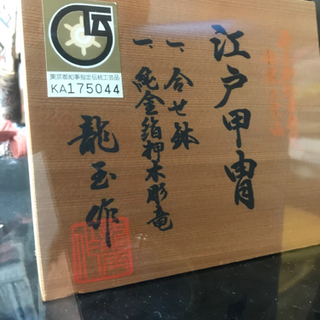 江戸甲冑
一、合せ鉢
一、純金箔押木彫竜
龍玉作
東京都知事指定伝統工芸品
KA175044